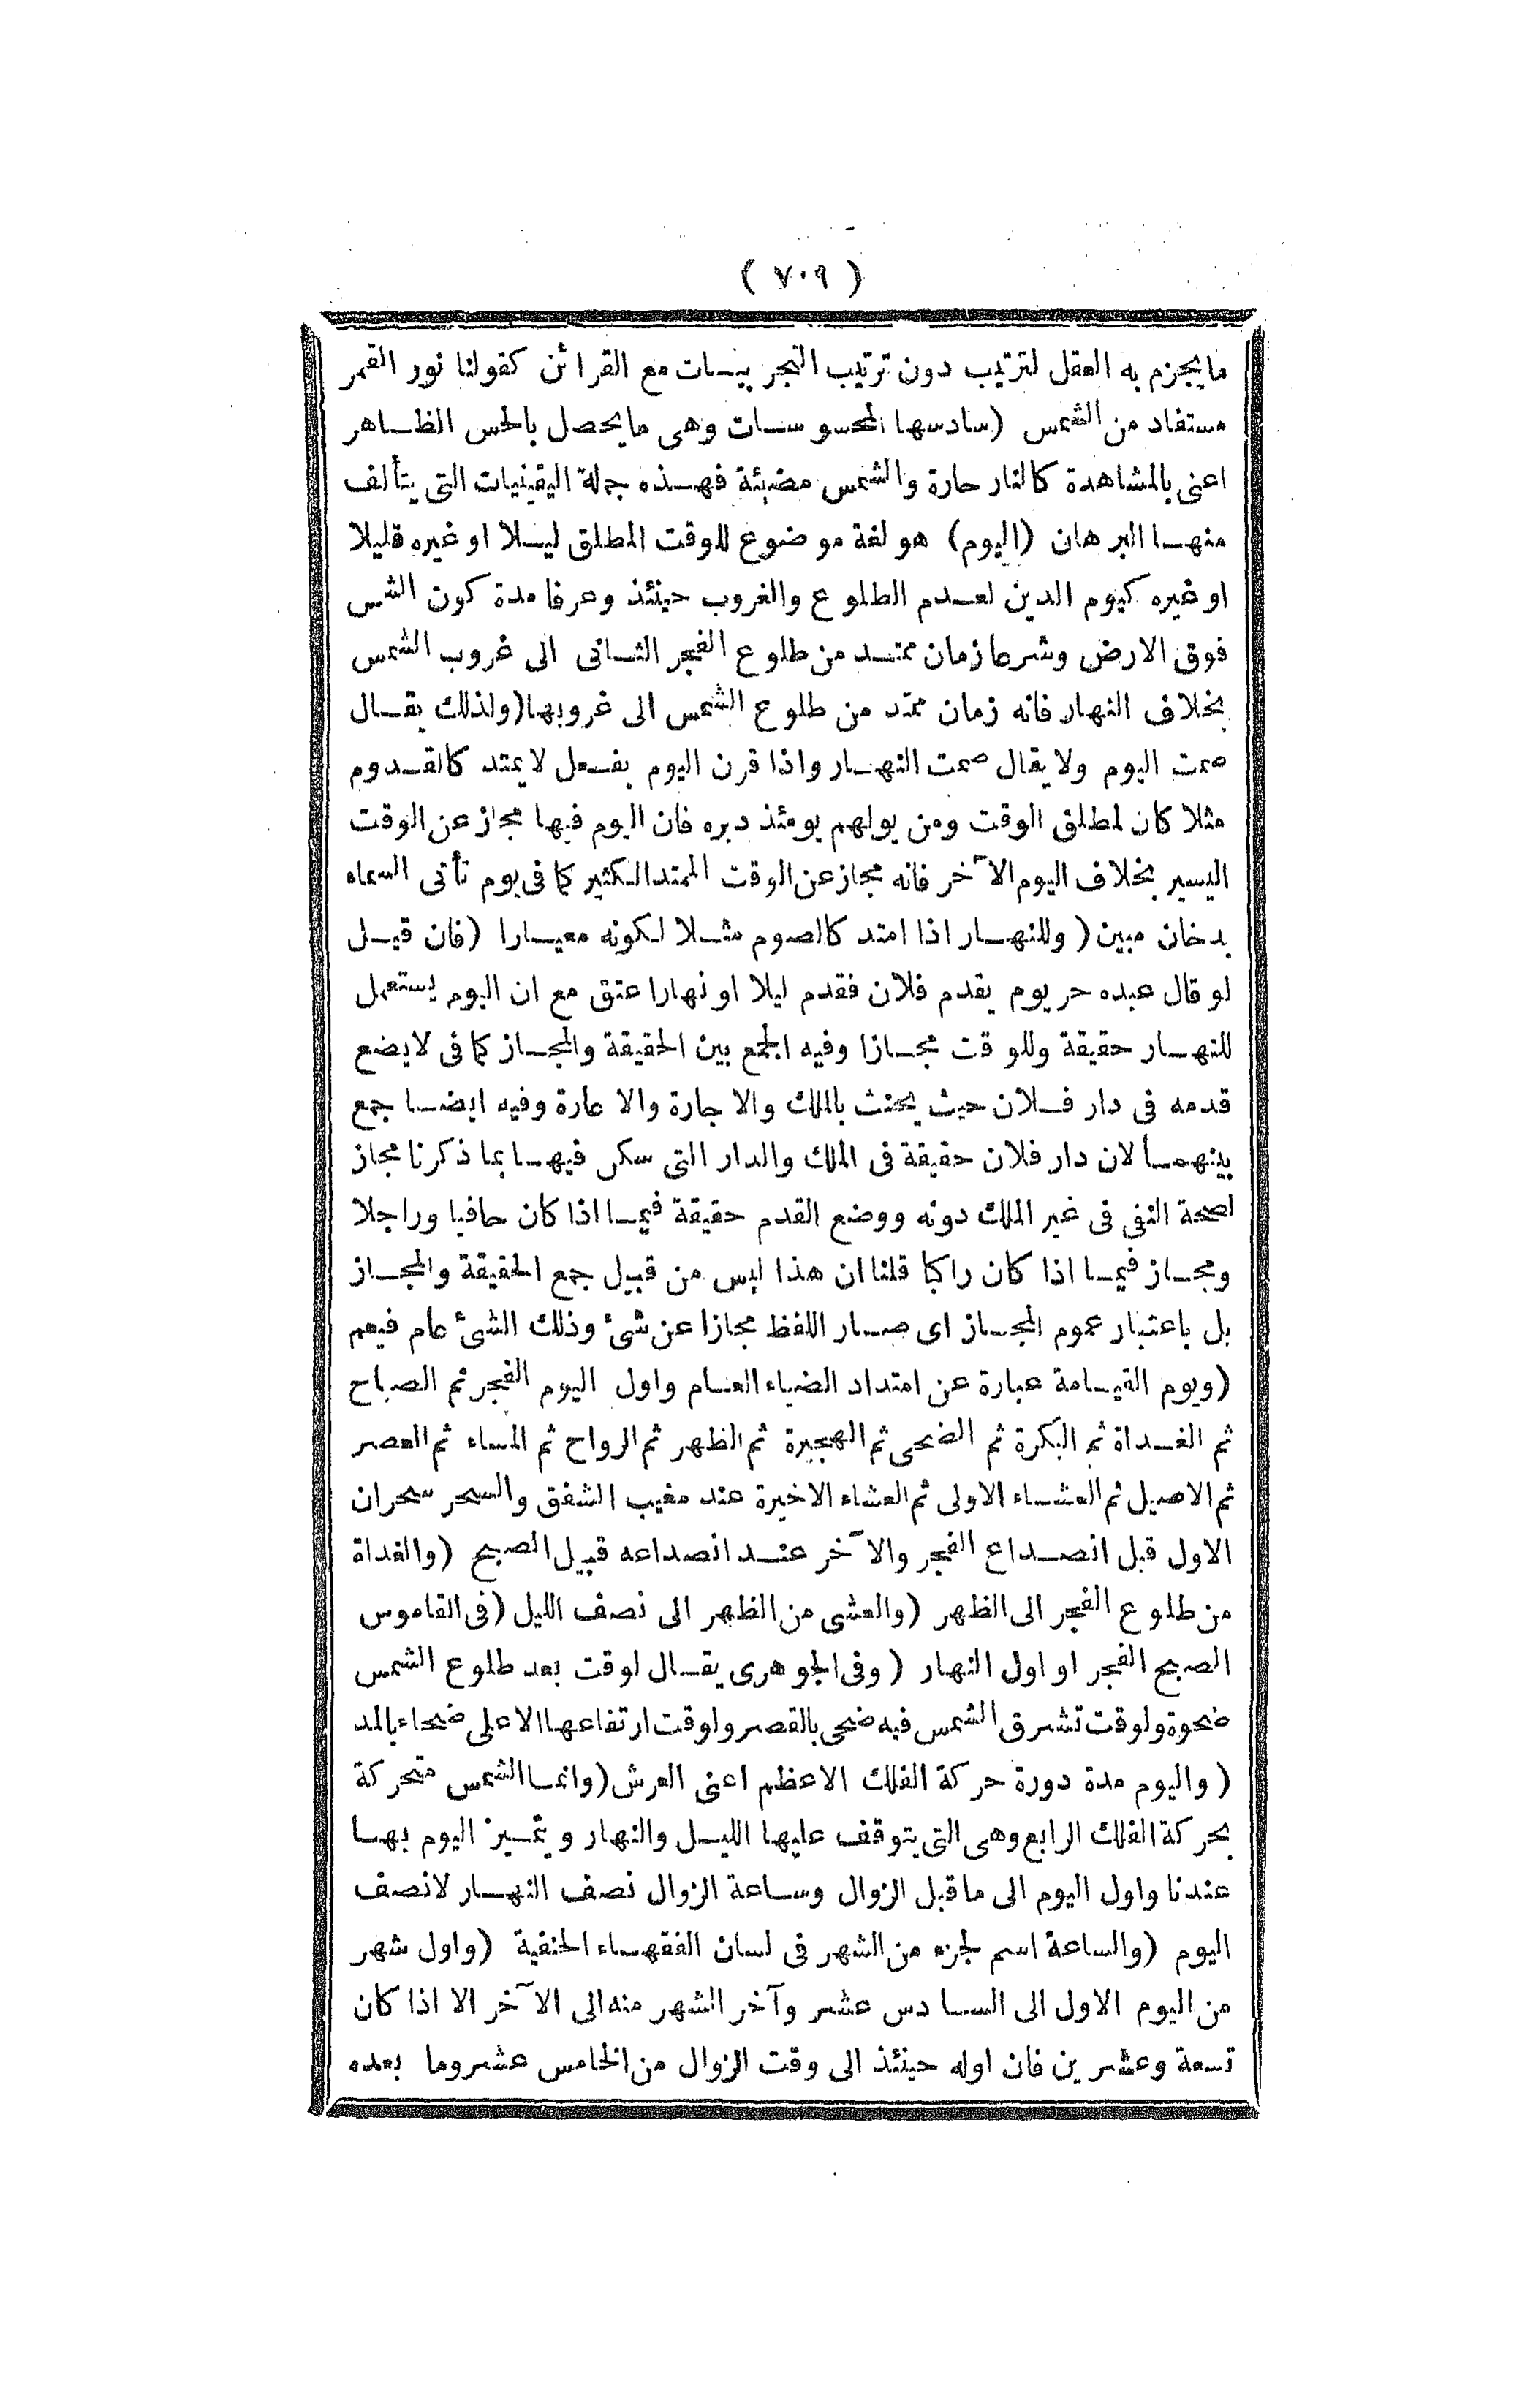 ( ٧٠٩ )
ما يجزم به العقل لترتيب دون ترتيب التجربيات مع القرائن كقولنا نور القمر
مستفاد من الشمس (سادسها المحسوسات وهى ما يحصل بالحس الظاهر
اعنى بالمشاهدة كالنار حارة والشمس مضيئة فهذه جملة اليقينيات التى يتألف
منها البرهان (اليوم) هو لغة موضوع للوقت المطلق ليلا او غيره قليلا
او غيره كيوم الدين لعدم الطلوع والغروب حينئذ وعرفا مدة كون الشمس
فوق الارض وشرعا زمان ممتد من طلوع الفجر الثانى الى غروب الشمس
بخلاف النهار فانه زمان ممتد من طلوع الشمس الى غروبها(ولذلك يقال
صمت اليوم ولا يقال صمت النهار واذا قرن اليوم بفعل لا يمتد كالقدوم
مثلا كان لمطلق الوقت ومن يولهم يومئذ دبره فان اليوم فيها مجاز عن الوقت
اليسير بخلاف اليوم الآخر فانه مجاز عن الوقت الممتد الكثير كما فى يوم تأتى السماء
بدخان مبين( وللنهار اذا امتد كالصوم مثلا لكونه معيارا (فان قيل
لو قال عبده حر يوم يقدم فلان فقدم ليلا او نهارا عتق مع ان اليوم يستعمل
للنهار حقيقة وللوقت مجازا وفيه الجمع بين الحقيقة والمجاز كما فى لا يضع
قدمه فى دار فلان حيث يحنث بالملك والاجارة والاعارة وفيه ايضا جمع
بينهما لان دار فلان حقيقة فى الملك والدار التى سكن فيها بما ذكرنا مجاز
لصحة النفى فى غير الملك دونه ووضع القدم حقيقة فيما اذا كان حافيا وراجلا
ومجاز فيما اذا كان راكبا قلنا ان هذا ليس من قبيل جمع الحقيقة والمجاز
بل باعتبار عموم المجاز اى صار اللفظ مجازا عن شئ وذلك الشئ عام فيعم
(ويوم القيامة عبارة عن امتداد الضياء العام واول اليوم الفجر ثم الصباح
ثم الغداة ثم البكرة ثم الضحى ثم الهجيرة ثم الظهر ثم الرواح ثم المساء ثم العصر
ثم الاصيل ثم العشاء الاولى ثم العشاء الاخيرة عند مغيب الشفق والسحر سحران
الاول قبل انصداع الفجر والآخر عند انصداعه قبيل الصبح (والغداة
من طلوع الفجر الى الظهر (والعشى من الظهر الى نصف الليل (فى القاموس
الصبح الفجر او اول النهار (وفى الجوهرى يقال لوقت بعد طلوع الشمس
ضحوة ولوقت تشرق الشمس فيه ضحى بالقصر ولوقت ارتفاعها الاعلى ضحاء بالمد
(واليوم مدة دورة حركة الفلك الاعظم اعنى العرش(وانما الشمس متحركة
بحركة الفلك الرابع وهى التى يتوقف عليها الليل والنهار ويتميز اليوم بها
عندنا واول اليوم الى ما قبل الزوال وساعة الزوال نصف النهار لا نصف
اليوم (والساعة اسم لجزء من الشهر فى لسان الفقهاء الحنفية (واول شهر
من اليوم الاول الى السادس عشر وآخر الشهر منه الى الآخر الا اذا كان
تسعة وعشرين فان اوله حينئذ الى وقت الزوال من الخامس عشر وما بعده